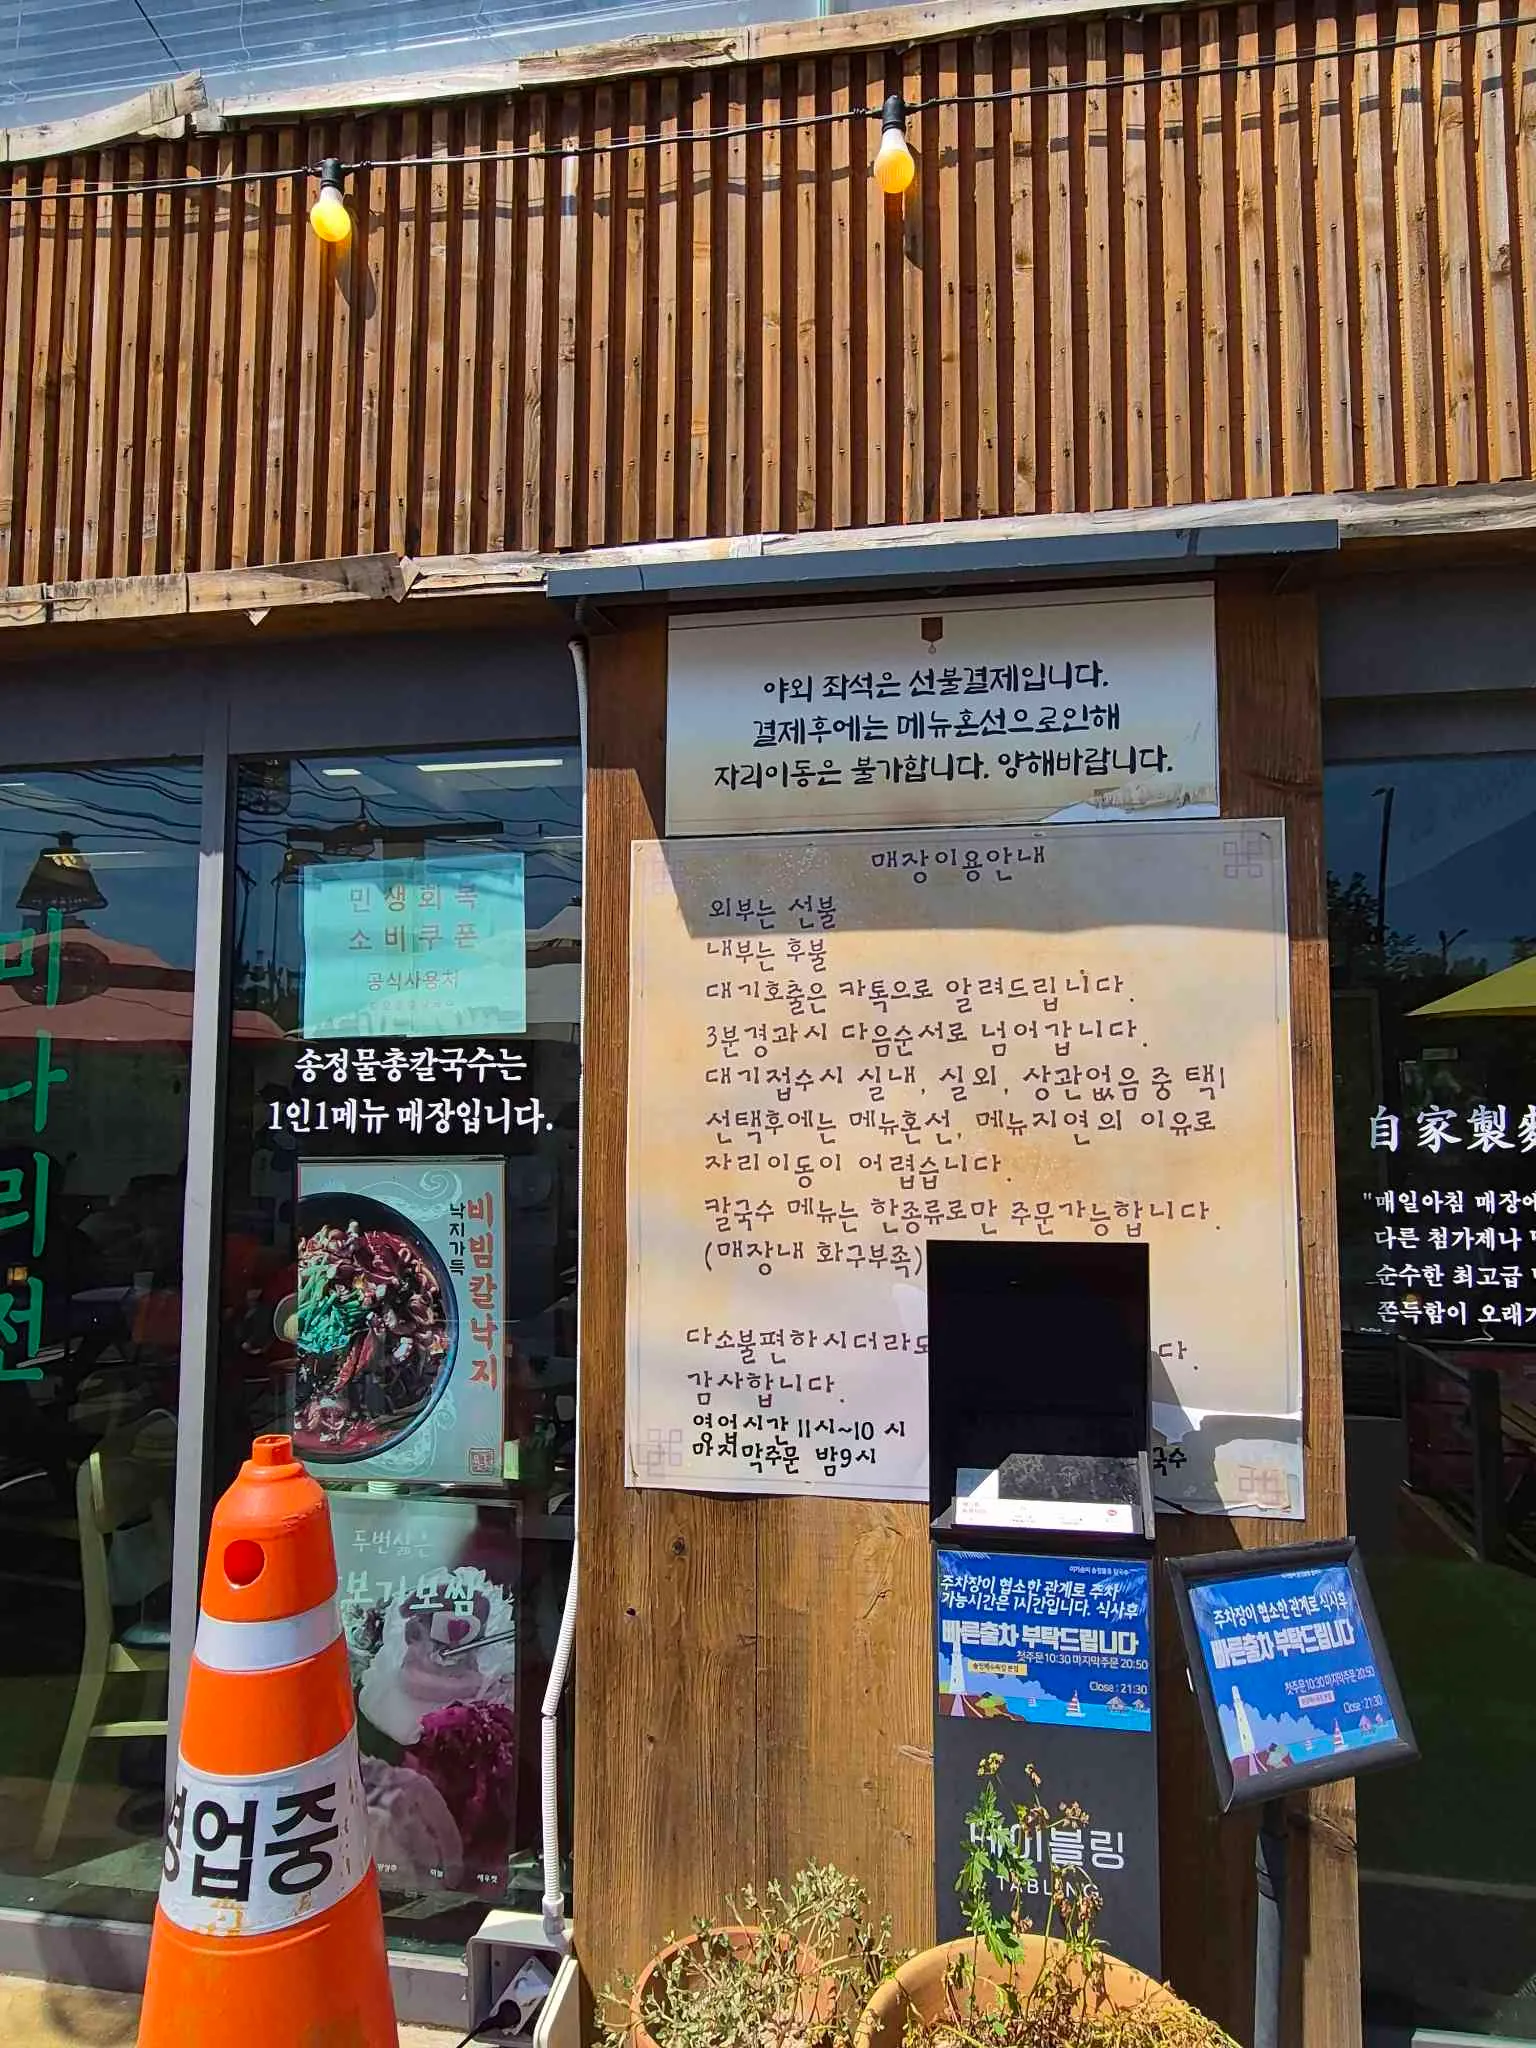 야외 좌석은 선불결제입니다.
결제후에는 메뉴혼선으로인해
자리이동은 불가합니다. 양해바랍니다.
매장이용안내
외부는 선불
내부는 후불
대기호출은 카톡으로 알려드립니다.
3분경과시 다음순서로 넘어갑니다.
대기접수시 실내, 실외, 상관없음 중 택1
선택후에는 메뉴혼선, 메뉴지연의 이유로
자리이동이 어렵습니다.
칼국수 메뉴는 한종류로만 주문가능합니다.
(매장내 화구부족)
다소불편하시더라도
다.
감사합니다.
영업시간 11시~10시
마지막주문 밤9시
국수
미나리전
민생회복
소비쿠폰
공식사용처
송정물총칼국수는
1인1메뉴 매장입니다.
낙지가득
비빔칼낙지
두번삶은
보가보쌈
새우젓
영업중
自家製
"매일아침 매장에
다른 첨가제나
순수한 최고급
쫀득함이 오래
주차장이 협소한 관계로 주차
가능시간은 1시간입니다. 식사후
빠른출차 부탁드립니다
첫주문10:30 마지막주문 20:50
Close : 21:30
테이블링
TABLING
주차장이 협소한 관계로 식사후
빠른출차 부탁드립니다
첫주문10:30 마지막주문 20:50
Close : 21:30